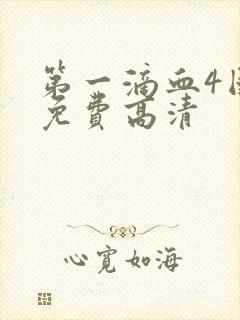 第一滴血4
免费高清
心宽如海